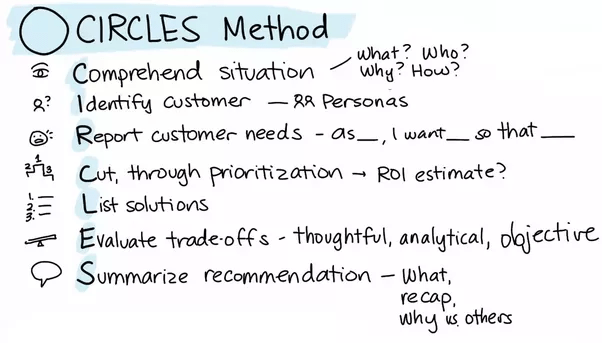 CIRCLES Method
Comprehend situation – What? Who?
Why? How?
Identify customer – Personas
Report customer needs - as __, I want __ so that __
Cut, through prioritization → ROI estimate?
List solutions
Evaluate trade-offs - thoughtful, analytical, objective
Summarize recommendation – What,
recap,
why vs. others